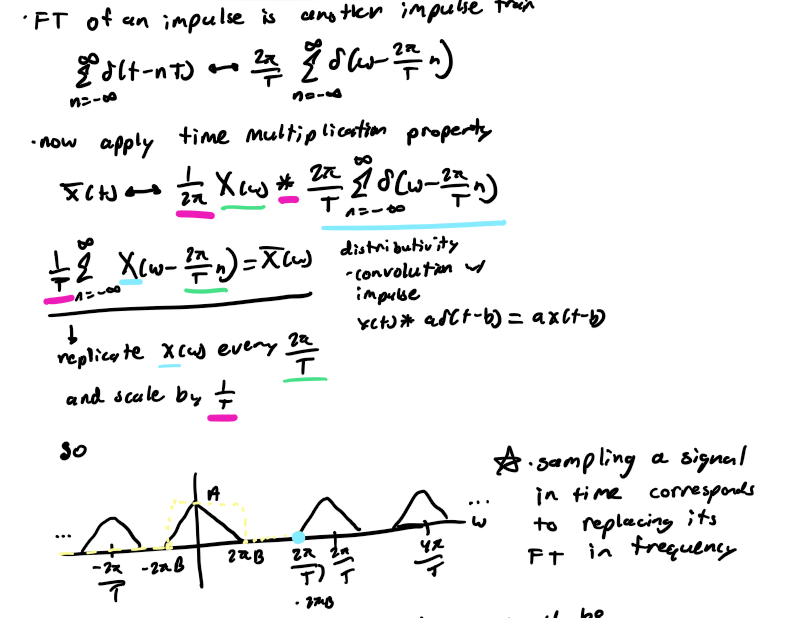 · FT of an impulse is another impulse train
∞ ∑ n=-∞ δ(t-nT) ↔ 2π/T ∞ ∑ n=-∞ δ(ω - 2π/T n)
· now apply time multiplication property
x̄(t) ↔ 1/2π X(ω) * 2π/T ∞ ∑ n=-∞ δ(ω - 2π/T n)
1/T ∞ ∑ n=-∞ X(ω - 2π/T n) = X̄(ω)
distributivity
- convolution w/
impulse
x(t) * aδ(t-b) = ax(t-b)
↓
replicate X(ω) every 2π/T
and scale by 1/T
so
☆ · sampling a signal
in time corresponds
to replacing its
FT in frequency
A
... ... ω
-2π/T -2πB 2πB 2π/T ) 2π/T 4π/T
be